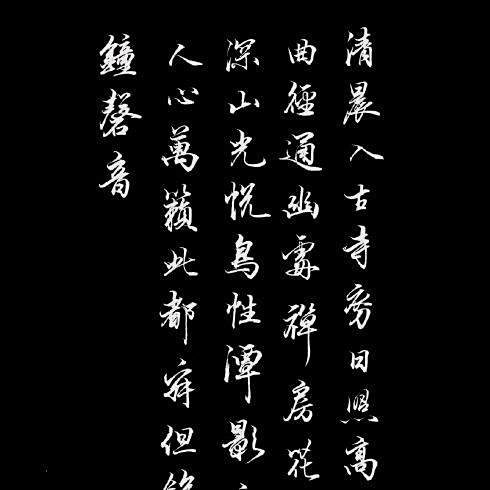 清晨入古寺日照高
曲徑通幽處禪房花
深山光悅鳥性潭影
人心萬籟此都寂但
鐘磬音